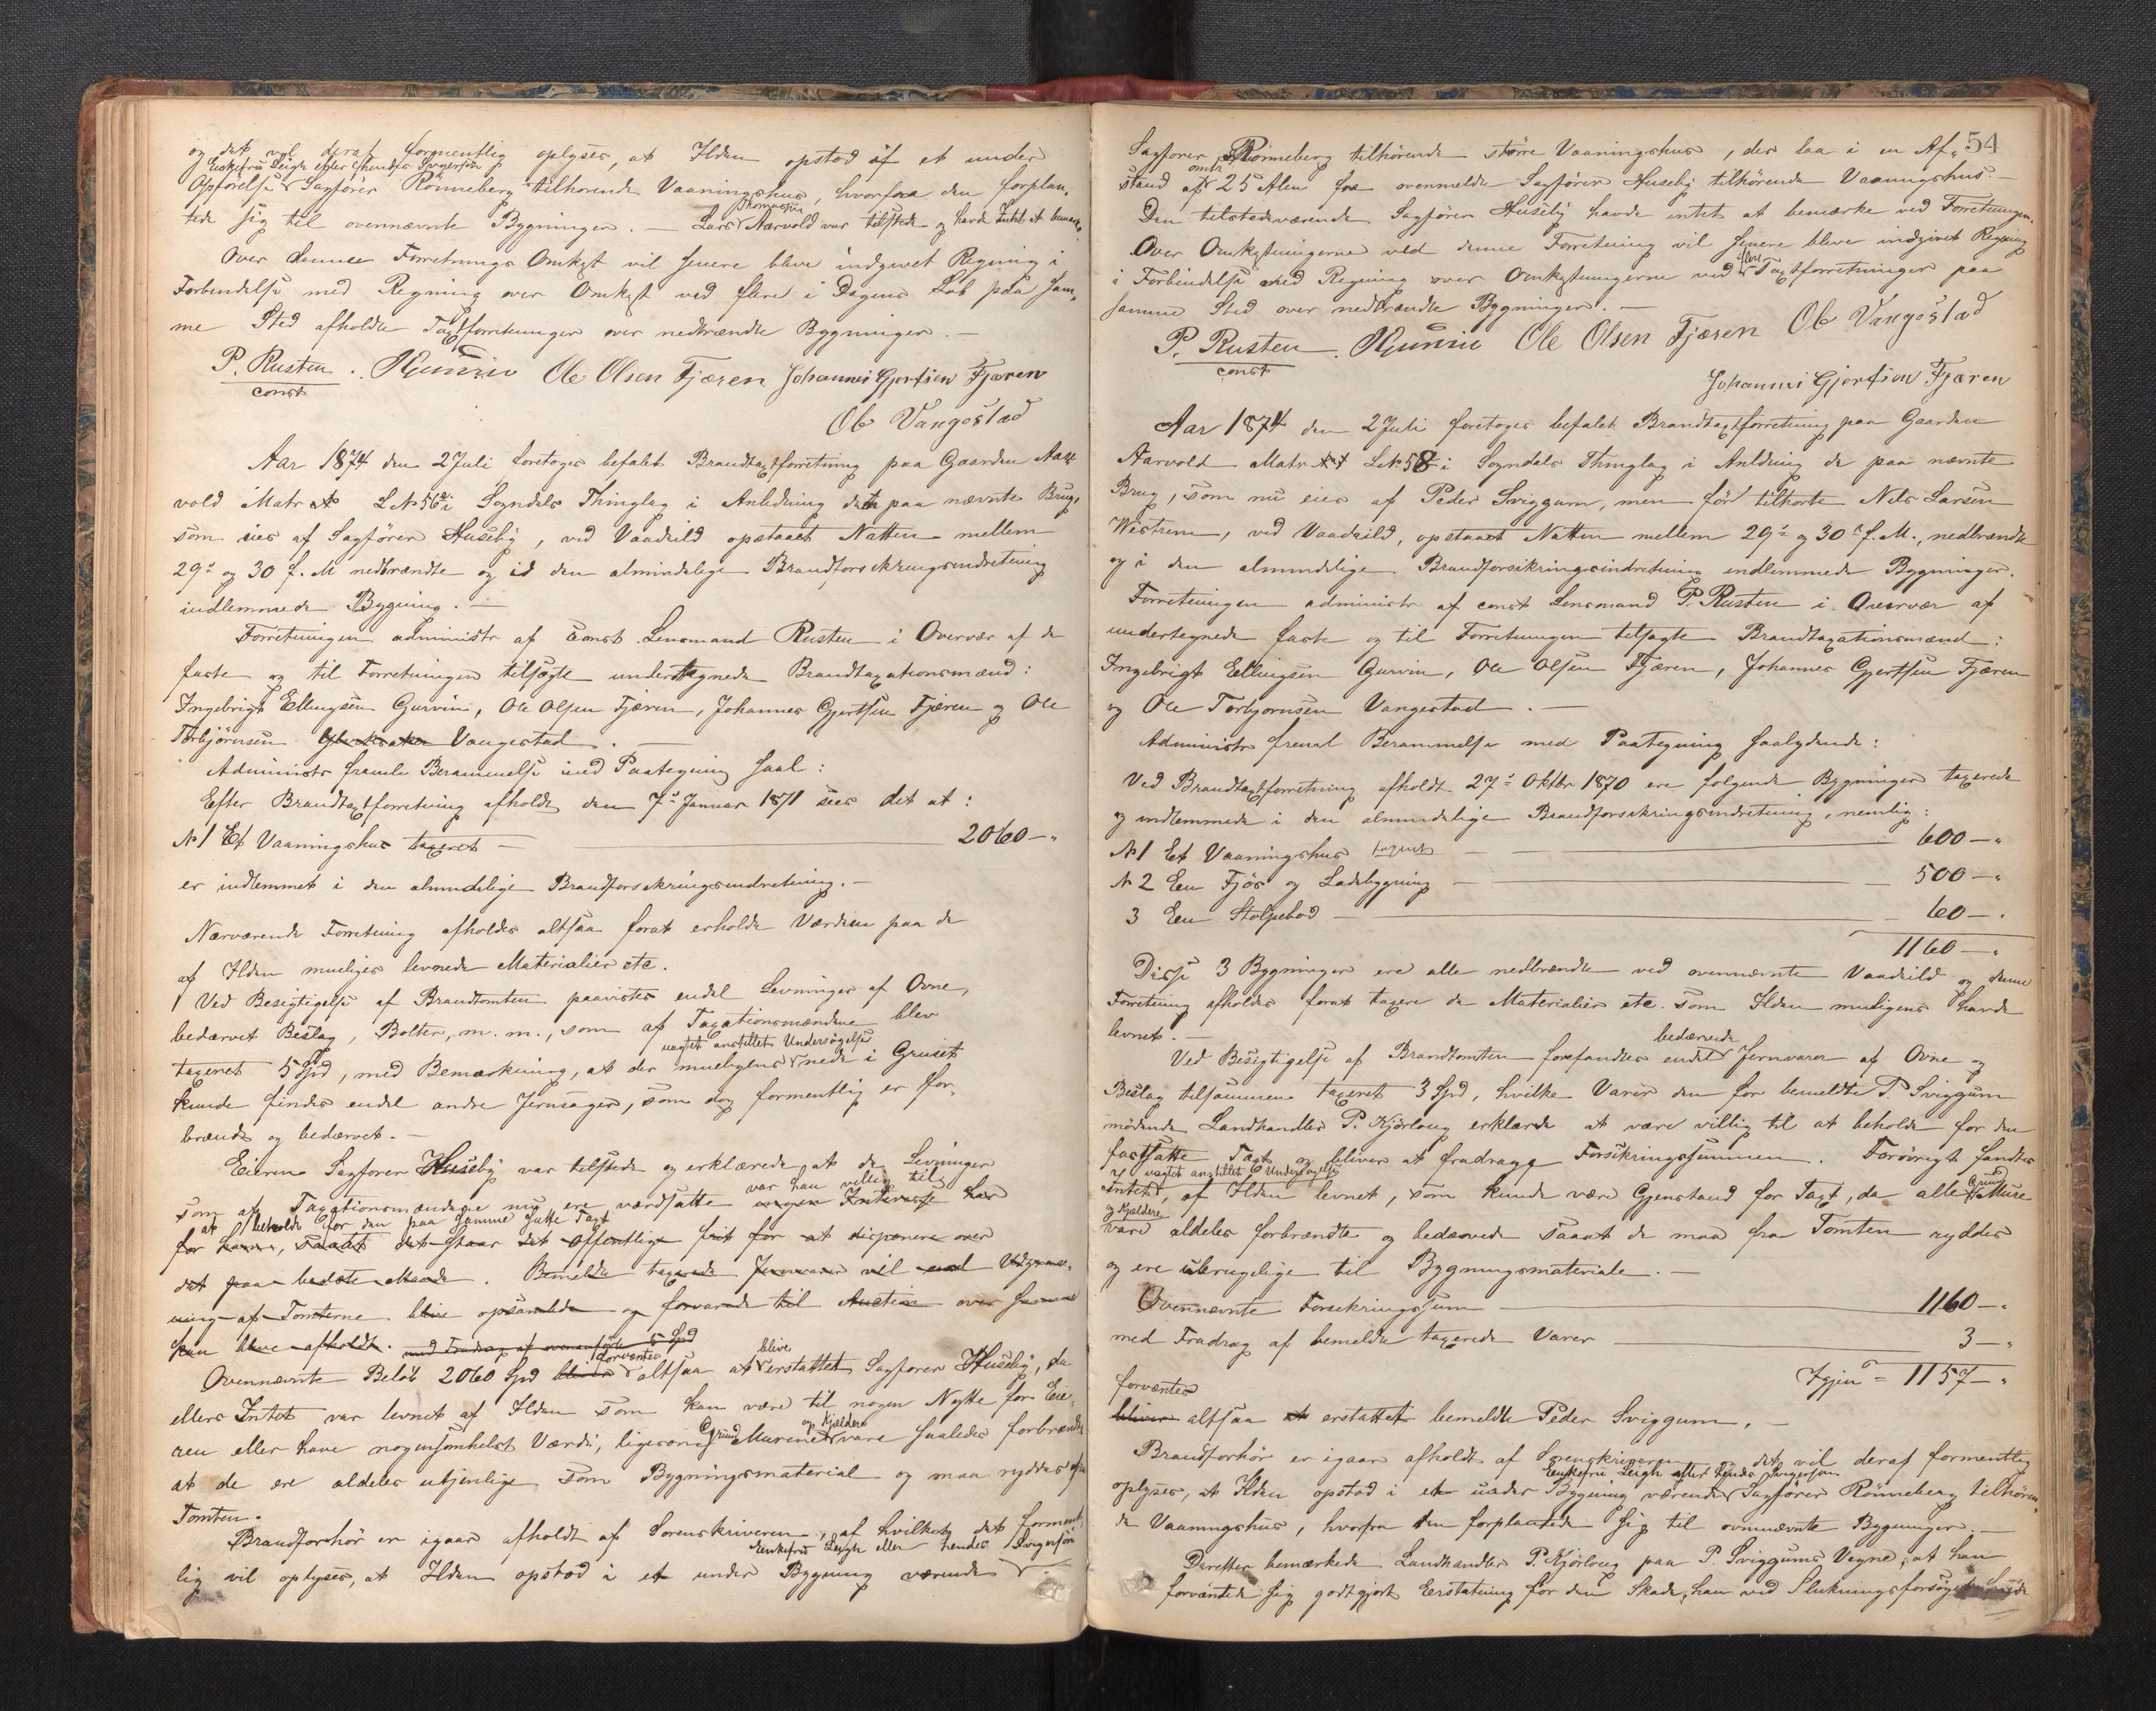 og det vil deraf formentlig oplyses, at Ilden opstod af et under
Enkefrü Leigh eller hendes Svigersøn
Opførelse Sagfører Rönneberg tilhørende Vaaningshus, hvorfra den forplan-
tede sig til ovennævnte Bygninger. — Lars Thomassen Aarvold var tilstede og havde Intet at bemærke.
Over denne Forretnings Omkost vil senere blive indgivet Regning i
Forbindelse med Regning over Omkost ved flere i Dagens Løb paa sam-
me Sted afholdte Taxtforretninger over nedbrændte Bygninger. —
P. Rusten. Ole Olsen Fjæren Johannes Gjertsen Fjæren
const
Ole Vangestad
Aar 1874 den 2 Juli foretoges befalet Brandtaxtforretning paa Gaarden Aar-
vold Matr № L № 56 i Sogndals Thinglag i Anledning den paa nævnte Brug,
som eies af Sagfører Huseby, ved Vaadeild opstaaet Natten mellem
29de og 30 f. M nedbrændte og i den almindelige Brandforsikringsindretning
indlemmede Bygning. —
Forretningen administr af const Lensmand Rusten i Overvær af de
faste og til Forretningen tilsagte undertegnede Brandtaxationsmænd:
Ingebrigt Ellingsen Gurvin, Ole Olsen Fjæren, Johannes Gjertsen Fjæren og Ole
Torbjörnsen Vangestad. —
Administr fremla Berammelse med Paategning saal:
Efter Brandtaxtforretning afholdt den 7de Januar 1871 sees det at:
№ 1 Et Vaaningshus taxeret — 2060 — "
er indlemmet i den almindelige Brandforsikringsindretning. —
Nærværende Forretning afholdes altsaa forat erholde Værdien paa de
af Ilden muligens levnede Materialier etc.
Ved Besigtigelse af Brandtomten paavistes endel Levninger af Ovne,
bedærvet Beslag, Bolter, m. m., som af Taxationsmændene blev
uagtet anstillet Undersøgelse
taxeret 5 Spd, med Bemærkning, at der muligens nede i Gruset
kunde findes endel andre Jernsager, som dog formentlig er for-
brændt og bedærvet. —
Eieren Sagfører Huseby var tilstede og erklærede, at de Levninger
var han villig til
som af Taxationsmændene nu ere værdsatte ingen Interesse har
at beholde for den paa samme satte Taxt
for ham, saaat det staar det Offentlige frit for at disponere over
det paa bedste Maade. Bemeldte taxerede Jernvarer vil ved Udgrav-
ning af Tomterne blive opsamlede og forvarede til Auction over samme
kan blive afholdt. med Fradrag af ovenanførte 5 Spd
forventes blive
Ovennævnte Beløb 2060 Spd bliver altsaa at erstattet Sagfører Huseby, da
ellers Intet var levnet af Ilden som kan være til nogen Nytte for Eie-
og Kjældere
ren eller have nogensomhelst Værdi, ligesom Grund Murene vare saaledes forbrændte
at de ere aldeles utjenlige som Bygningsmaterial og maa ryddes af
Tomten.
Brandforhör er igaar afholdt af Sorenskriveren, af hvilket det forment-
Enkefrü Leigh eller hendes Svigersön
lig vil oplyses, at Ilden opstod i et under Bygning værende
54
Sagfører Rönneberg tilhörende större Vaaningshus, der laa i en Af-
omtr
stand af 25 Alen fra ovenmeldte Sagfører Huseby tilhörende Vaaningshus. —
Den tilstedeværende Sagfører Huseby havde intet at bemærke ved Forretningen.
Over Omkostningerne ved denne Forretning vil senere blive indgivet Regning
flere
i Forbindelse med Regning over Omkostningerne ved Taxtforretninger paa
samme Sted over nedbrændte Bygninger. —
P. Rusten. Ole Olsen Fjæren Ole Vangestad
const
Johannes Gjertsen Fjæren
Aar 1874 den 2 Juli foretoges befalet Brandtaxtforretning paa Gaarden
Aarvold Matr № L № 58 i Sogndals Thinglag i Anledning de paa nævnte
Brug, som nu eies af Peder Sviggum, men før tilhørte Nils Larsen
Westrem, ved Vaadeild, opstaaet Natten mellem 29de og 30te f. M., nedbrændte
og i den almindelige Brandforsikringsindretning indlemmede Bygninger.
Forretningen administr af const Lensmand P. Rusten i Overvær af
undertegnede faste og til Forretningen tilsagte Brandtaxationsmænd:
Ingebrigt Ellingsen Gurvin, Ole Olsen Fjæren, Johannes Gjertsen Fjæren
og Ole Torbjørnsen Vangestad. —
Administr fremla Berammelse med Paategning saalydende:
Ved Brandtaxtforretning afholdt 27de Oktbr 1870 ere følgende Bygninger taxerede
og indlemmede i den almindelige Brandforsikringsindretning, nemlig:
№ 1 Et Vaaningshus taxeret — 600 — "
№ 2 Een Fjøs og Ladebygning — 500 — "
3 Een Stolpebod — 60 — "
1160 — "
Disse 3 Bygninger ere alle nedbrændte ved ovennævnte Vaadeild og denne
Forretning afholdes forat taxere de Materialier etc. som Ilden muligens havde
levnet. —
bedærvede
Ved Besigtigelse af Brandtomten forefandtes endel Jernvarer af Ovne og
Beslag tilsammen taxeret 3 Spd, hvilke Varer den for bemeldte P. Sviggum
mødende Landhandler P. Kjörloug erklærede at være villig til at beholde for den
fastsatte Taxt og bliver at fradrage Forsikringssummen. Forøvrigt fandtes
uagtet anstillet Undersøgelse
Intet, af Ilden levnet, som kunde være Gjenstand for Taxt, da alle Grund Mure
og Kjældere
vare aldeles forbrændte og bedærvede saaat de maa fra Tomten ryddes
og ere ubrugelige til Bygningsmateriale. —
Ovennævnte Forsikringssum — 1160 — "
med Fradrag af bemeldte taxerede Varer — 3 — "
Igjen = 1157 — "
forventes
bliver altsaa at erstattet bemeldte Peder Sviggum. —
Brandforhör er igaar afholdt af Sorenskriveren og det vil deraf formentlig
Enkefrü Leigh eller hendes Svigersøn
oplyses, at Ilden opstod i et under Bygning værende Sagfører Rönneberg tilhören-
de Vaaningshus, hvorfra den forplantede sig til ovennævnte Bygninger. —
Derefter bemærkede Landhandler P. Kjörloug paa P. Sviggums Vegne, at han
forventede sig godtgjort Erstatning for den Skade, han ved Slukningsforsøget